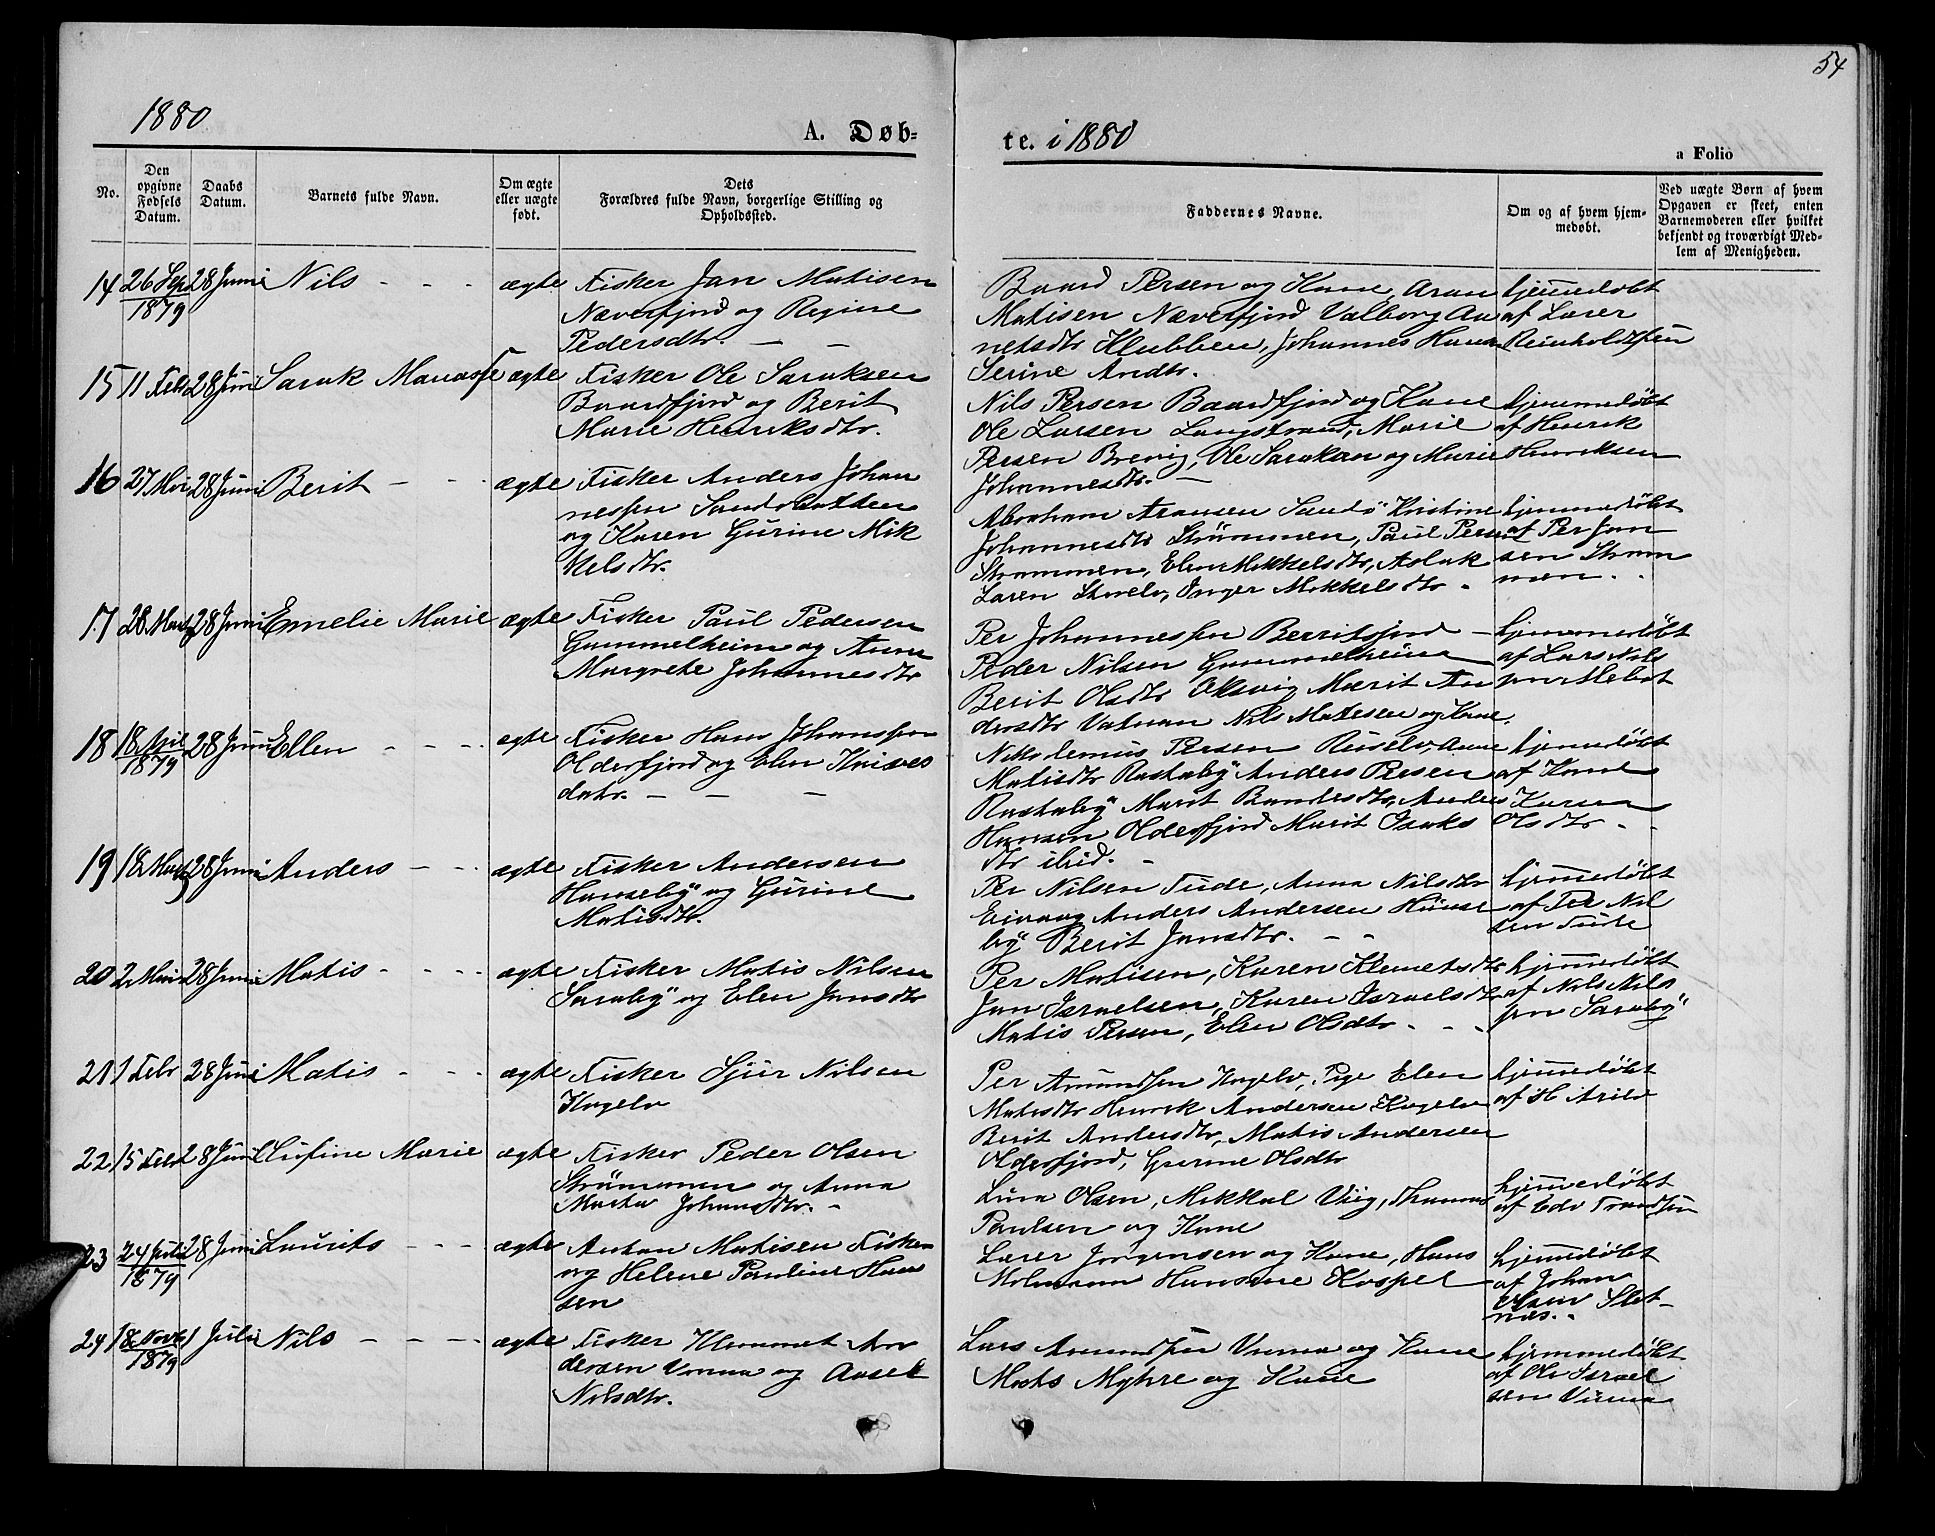 54
1880
A. Døb-
te. i 1880
a Folio
No.
Den
opgivne
Fødsels
Datum.
Daabs
Datum.
Barnets fulde Navn.
Om ægte
eller uægte
født.
Dets
Forældres fulde Navn, borgerlige Stilling og
Opholdssted.
Faddernes Navne.
Om og af hvem hjem-
medøbt.
Ved uægte Børn af hvem
Opgaven er skeet, enten
Barnemoderen eller hvilket
bekjendt og troværdigt Med-
lem af Menigheden.
14 26 Sep 1879 28 Juni Nils - - - ægte Fisker Jan Matisen
Næverfjord og Regine
Pedersdtr. - -
Baard Persen og Kone, Aron
Matisen Næverfjord Valborg An
netsdtr Klubben, Johannes Hansen
Serine Andtr.
hjemmedøbt
af Lærer
Reinholdtsen
15 11 Febr 28 Juni Sarak Manasse ægte Fisker Ole Saraksen
Baardfjord og Berit
Marie Henriksdtr.
Nils Persen Baardfjord og Kone
Ole Larsen Langstrand, Marie
Persen Brevig, Ole Saraksen og Marie
Johannesdtr. -
hjemmedøbt
af Henrik
Henriksen
16 27 Mai 28 Juni Berit - - - ægte Fisker Anders Johan
nessen Sandbotten
og Karen Gurine Mik
kelsdtr.
Abraham Aronsen Sandö Kristine
Johannesdtr Strömmen, Paul Persen
Strommen, Elen Mikkelsdtr, Aslak
Larsen, Inger Mikkelsdtr -
hjemmedøbt
af Per Jan
sen Strom
men. -
17 28 Marts 28 Juni Emelie Marie ægte Fisker Paul Pedersen
Gammelheim og Anne
Margrete Johannesdtr
Per Johannessen Berritsfjord -
Peder Nilsen Gammelheim
Berit Olsdtr Oksvig Marit An
dersdtr Vatnan Nils Matesen og Kone.
hjemmedøbt
af Lars Nils
sen Klebot
18 18 April 1879 28 Juni Ellen - - - ægte Fisker Hans Johanssen
Olderfjord og Elen Knives
datr. - - -
Nikodemus Persen Anne
Matisdtr Rastaby Anders Persen
Rastaby Marit Bandesdtr, Anders
Hansen Olderfjord Marit Isaks
dtr ibid. -
hjemmedøbt
af Kone
Karen
Olsdtr - -
19 18 Marts 28 Juni Anders - - - ægte Fisker Andersen
Hanseby og Gurine
Matisdtr.
Per Nilsen Tude, Anna Nilsdtr
Anders Andersen Hanse
by Berit Jansdtr. - -
hjemmedøbt
af Per Nil
sen Tude
20 2 Mai 28 Juni Matis - - - ægte Fisker Matis Nilsen
Saraby og Elen Jansdtr
Per Matisen, Karen Klemetsdtr
Jan Israelsen, Karen Israelsdtr
Matis Persen, Elen Olsdtr - - -
hjemmedøbt
af Nils Nils
sen Saraby
21 1 Febr 28 Juni Matis - - - ægte Fisker Sjur Nilsen
Kogelv
Per Amundsen Kogelv, Pige Elen
Matisdtr Henrik Andersen Kogelv
Berit Andersdtr, Matis Andersen
Olderfjord, Gurine Olsdtr
hjemmedøbt
af H Arild
22 15 Febr 28 Juni Josefine Marie ægte Fisker Peder Olsen
Strömmen og Anna
Marta Johansdtr. -
Lina Olsen, Mikkal Viig, Thomas
Paulsen og Kone
hjemmedøbt
af Edv Trondsen
23 24 Juli 1879 28 Juni Laurits - - - ægte Anton Matisen Fisker
og Helene Pauline Han
sen
Lærer Jørgensen og Kone, Hans
Molmann Hansine Kaspel
hjemmedøbt
af Johan
Olsen Slet-
nes. -
24 18 Novbr 1879 1 Juli Nils - - - ægte Fisker Klemmet An
dersen Vinna og Aasel
Nilsdtr.
Lars Amundsen Vinna og Kone
Mats Myhre og Kone
hjemmedøbt
af Ole Israel
sen Vinna